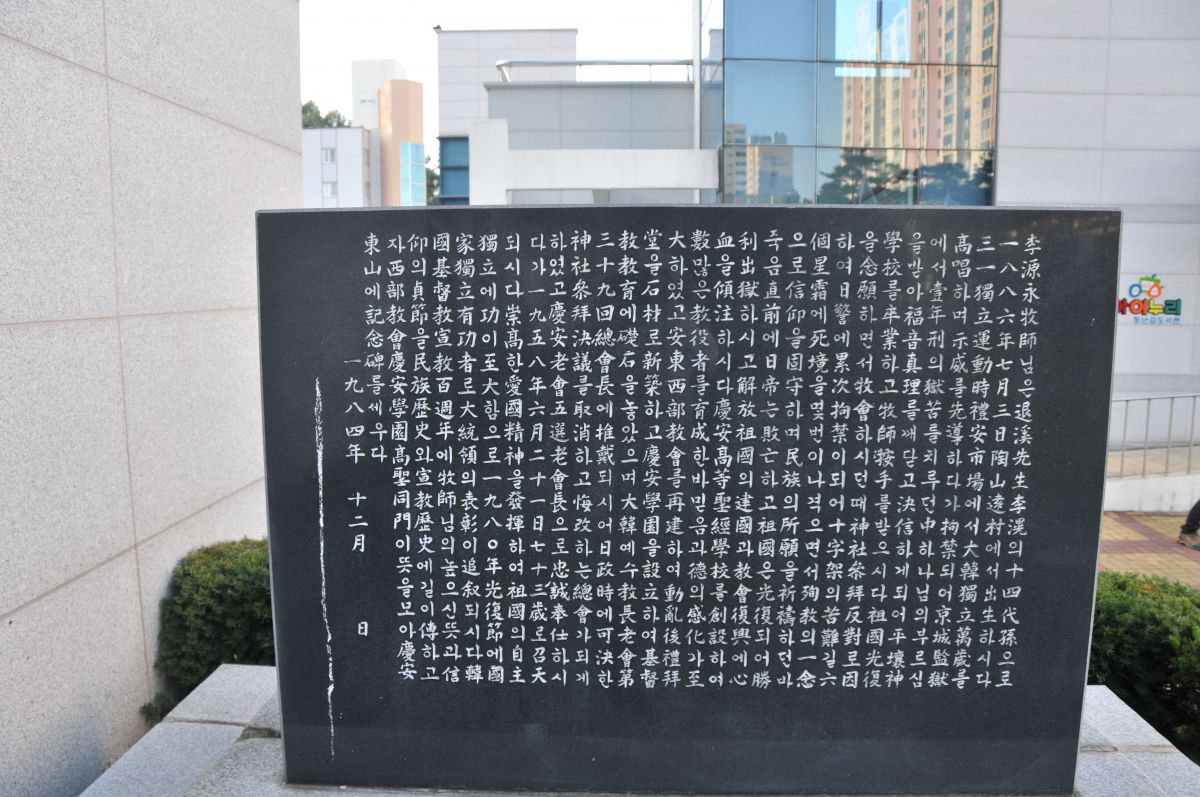 李源永牧師님은退溪先生李滉의十四代孫으로
一八八六年七月三日陶山遠村에서出生하시다
三一獨立運動時禮安市場에서大韓獨立萬歲를
高唱하며示威를先導하다가拘禁되어京城監獄
에서壹年刑의獄苦를치루던中하나님의부르심
을받아福音真理를깨닫고決信하게되어平壤神
學校를卒業하고牧師按手를받으시다祖國光復
을念願하면서牧會하시던때神社參拜反對로因
하여日警에累次拘禁이되어十字架의苦難길六
個星霜에死境을몇번이나격으면서殉教의一念
으로信仰을固守하며民族의所願을祈禱하던바
죽음直前에日帝는敗亡하고祖國은光復되어勝
利出獄하시고解放祖國의建國과教會復興에心
血을傾注하시다慶安高等聖經學校를創設하여
數많은教役者를育成한바믿음과德의感化가至
大하였고安東西部教會를再建하여動亂後禮拜
堂을石材로新築하고慶安學園을設立하여基督
教教育에礎石을놓았으며大韓예수教長老會第
三十九回總會長에推戴되시어日政時에可決한
神社參拜決議를取消하고悔改하는總會가되게
하였고慶安老會五選老會長으로忠誠奉仕하시
다가一九五八年六月二十一日七十三歲로召天
되시다崇高한愛國精神을發揮하여祖國의自主
獨立에功이至大함으로一九八〇年光復節에國
家獨立有功者로大統領의表彰이追敘되시다韓
國基督教宣教百週年에牧師님의높으신뜻과信
仰의貞節을民族歷史와宣教歷史에길이傳하고
자西部教會慶安學園高聖同門이뜻을모아慶安
東山에記念碑를세우다
一九八四年 十二月 日
아이누리